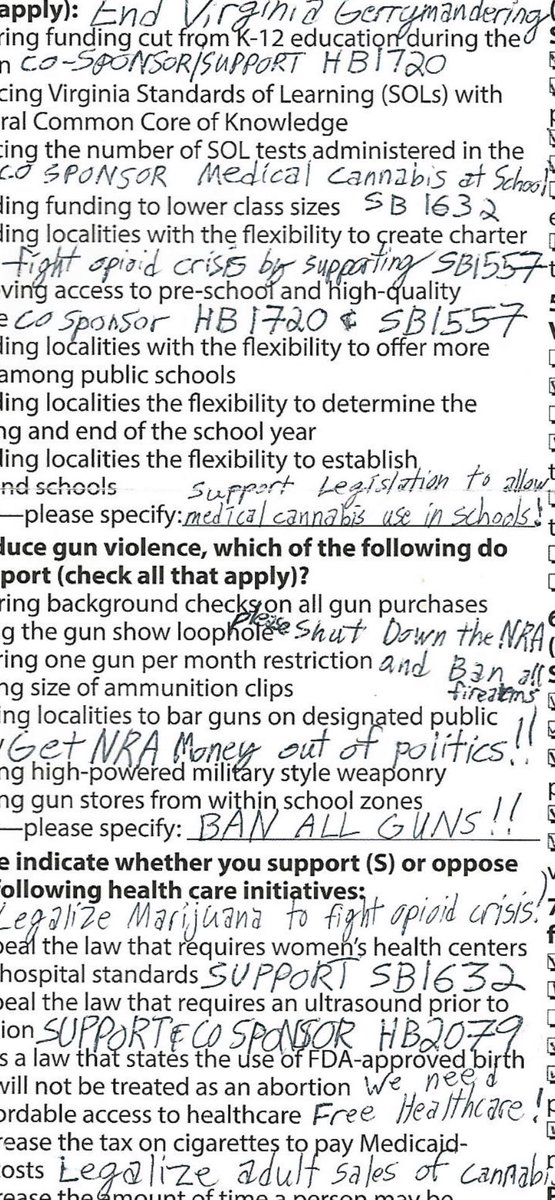 apply): End Virginia Gerrymandering
ring funding cut from K-12 education during the
n CO-SPONSOR/SUPPORT HB1720
cing Virginia Standards of Learning (SOLs) with
ral Common Core of Knowledge
cing the number of SOL tests administered in the
CO SPONSOR Medical Cannabis at School
ding funding to lower class sizes SB 1632
ding localities with the flexibility to create charter
fight opioid crisis by supporting SB1557
oving access to pre-school and high-quality
e CO Sponsor HB1720 & SB1557
ding localities with the flexibility to offer more
among public schools
ding localities the flexibility to determine the
ng and end of the school year
ding localities the flexibility to establish
nd schools Support Legislation to allow
—please specify: medical cannabis use in schools!
duce gun violence, which of the following do
port (check all that apply)?
ring background checks on all gun purchases
g the gun show loophole please Shut Down the NRA
ring one gun per month restriction and Ban all
ng size of ammunition clips firearms
ing localities to bar guns on designated public
Get NRA Money out of politics!!
ng high-powered military style weaponry
ng gun stores from within school zones
—please specify: BAN ALL GUNS!!
e indicate whether you support (S) or oppose
following health care initiatives:
Legalize Marijuana to fight opioid crisis!
peal the law that requires women's health centers
hospital standards SUPPORT SB1632
peal the law that requires an ultrasound prior to
ion SUPPORT & CO SPONSOR HB2079
s a law that states the use of FDA-approved birth
will not be treated as an abortion We need
ordable access to healthcare Free Healthcare!
rease the tax on cigarettes to pay Medicaid-
costs Legalize adult sales of cannabi
rease the amount of time a person may be